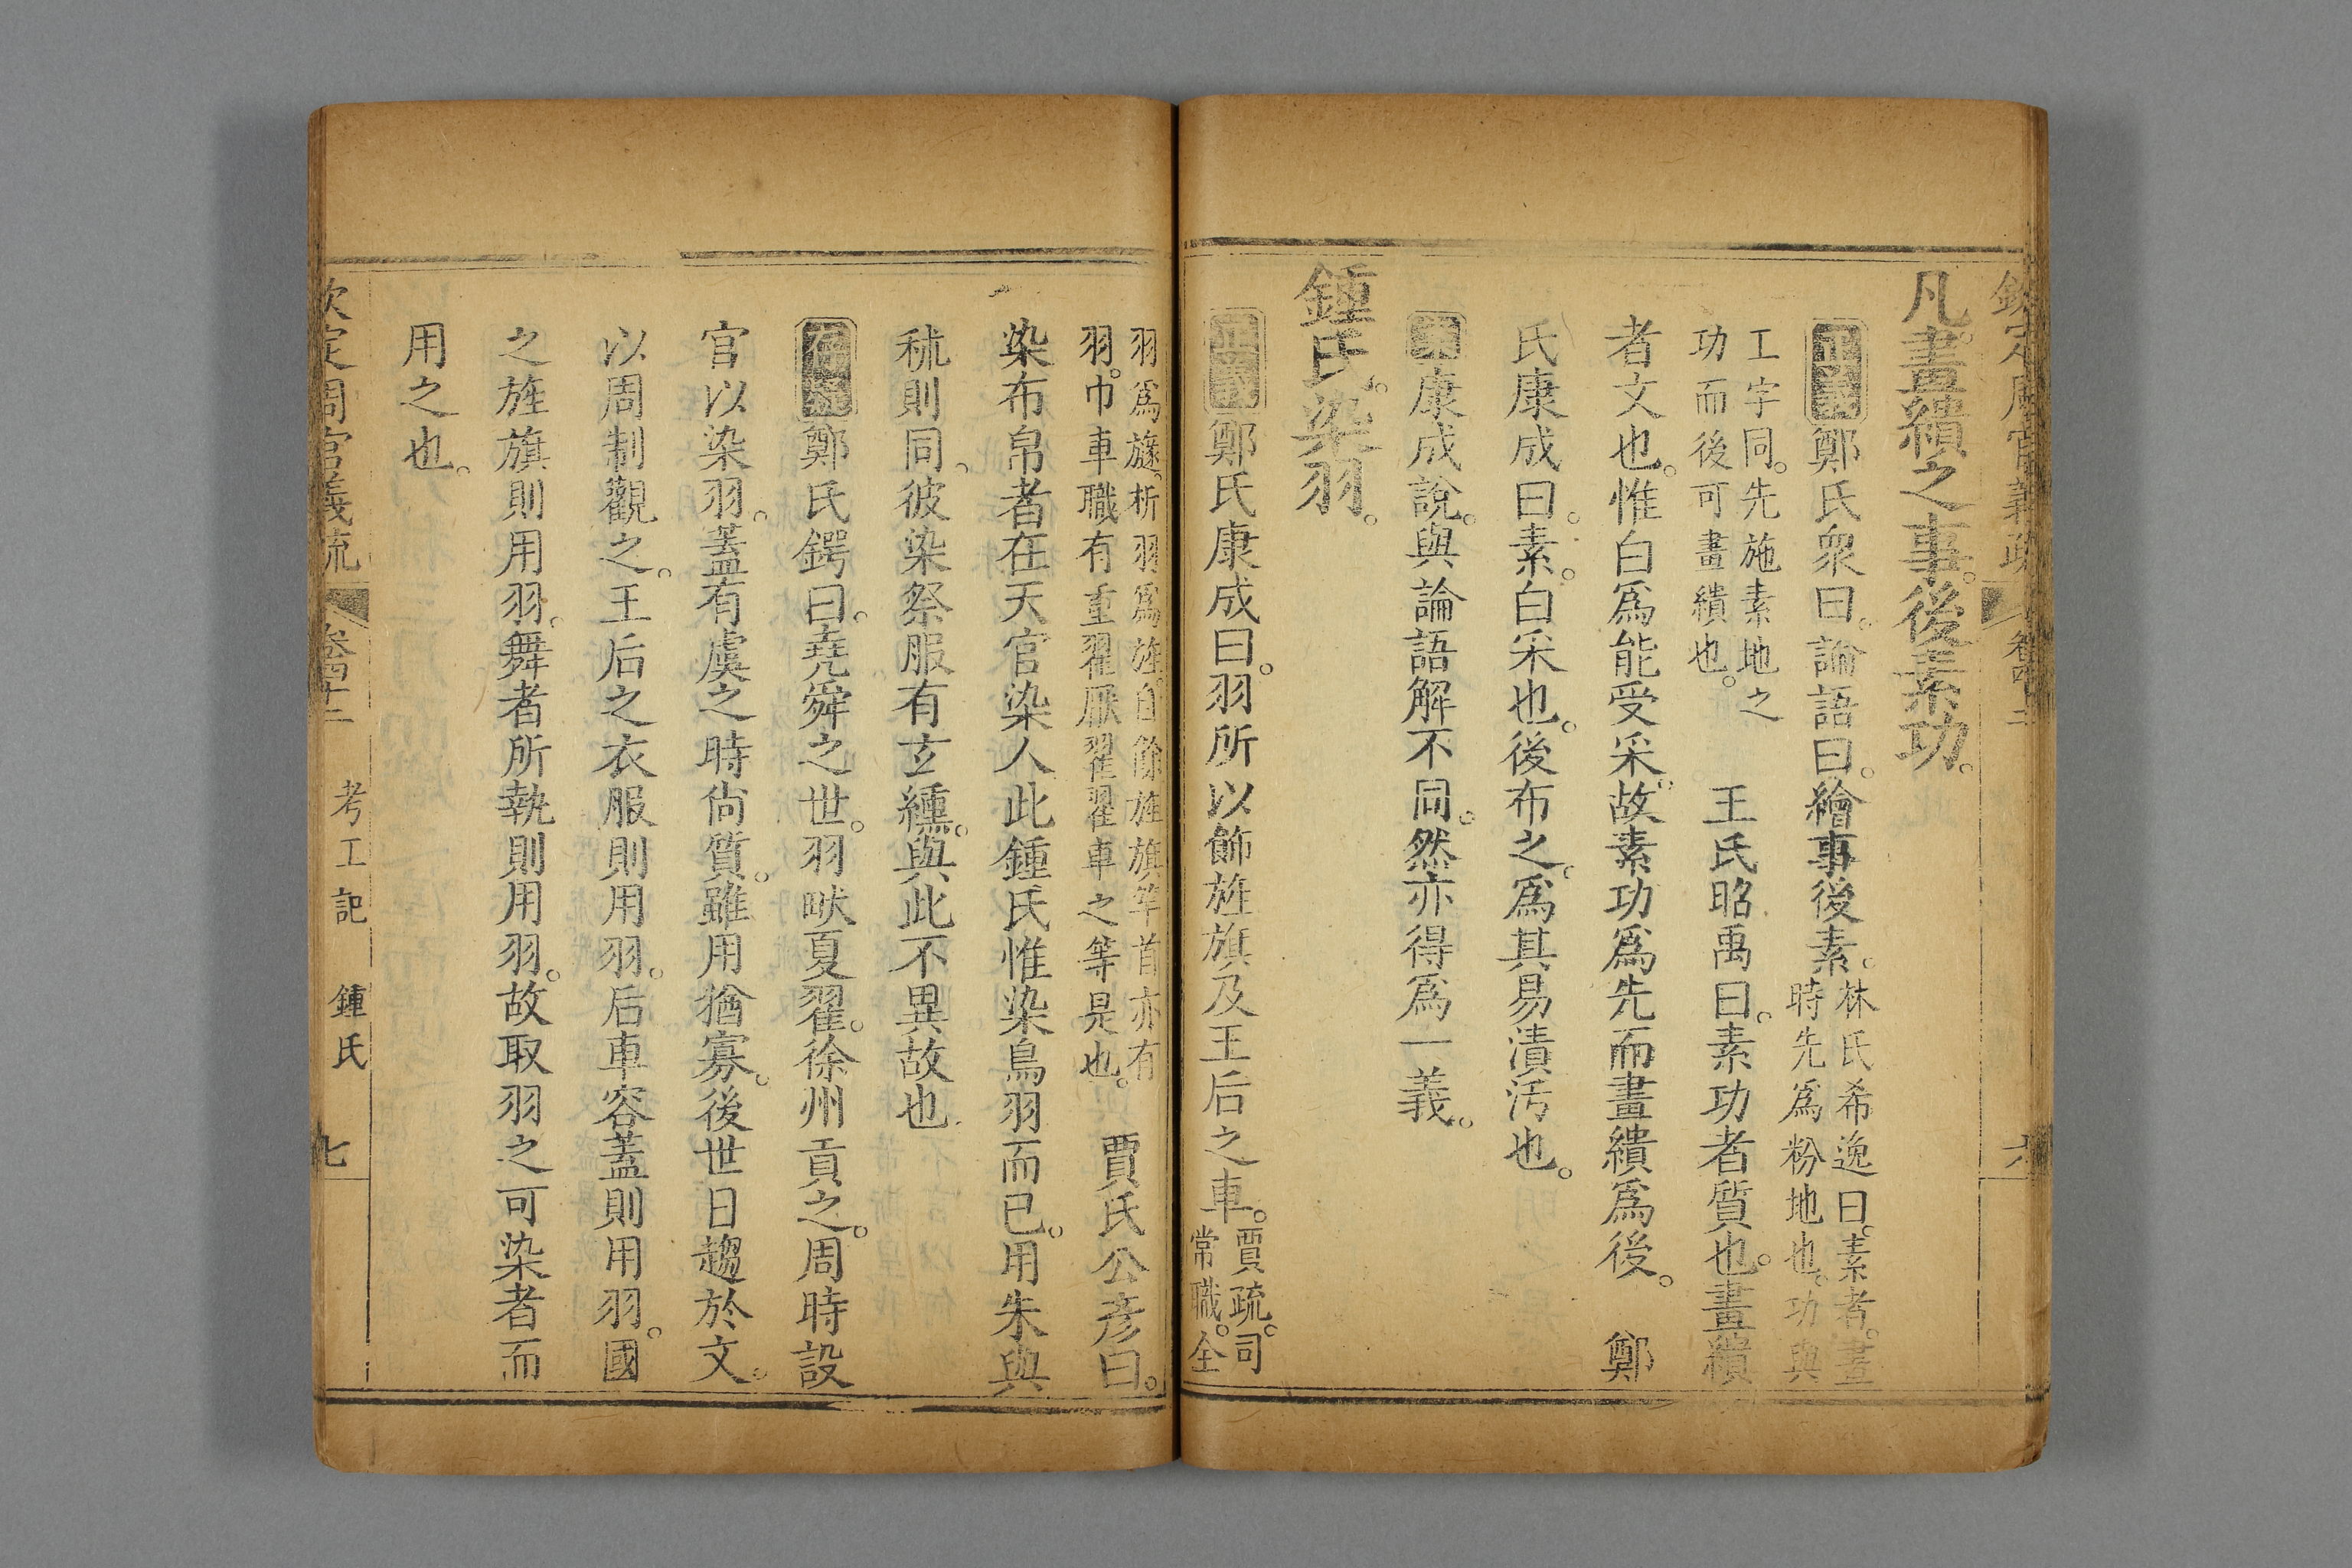 欽定周官義疏 卷四十二 六
凡畫繢之事。後素功。
正義 鄭氏衆曰。論語曰。繪事後素。林氏希逸曰。素者。畫
時先爲粉地也。功與
工字同。先施素地之
功而後可畫繢也。
王氏昭禹曰。素功者質也。畫繢
者文也。惟白爲能受采。故素功爲先而畫繢爲後。 鄭
氏康成曰。素。白采也。後布之。爲其易漬汚也。
案 康成說。與論語解不同。然亦得爲一義。
鍾氏。染羽。
正義 鄭氏康成曰。羽所以飾旌旗及王后之車。賈疏。司
常職。全
羽爲旞。析羽爲旌。自餘旌旗竿首亦有
羽。巾車職有重翟厭翟翟車之等是也。
賈氏公彥曰。
染布帛者在天官染人此鍾氏惟染鳥羽而已。用朱與
秫則同。彼染祭服有玄纁。與此不異故也
存疑 鄭氏鍔曰。堯舜之世。羽畎夏翟。徐州貢之。周時設
官以染羽。蓋有虞之時尙質。雖用猶寡。後世日趨於文。
以周制觀之。王后之衣服則用羽。后車容蓋則用羽。國
之旌旗則用羽。舞者所執則用羽。故取羽之可染者而
用之也。
欽定周官義疏 卷四十二 考工記 鍾氏 七